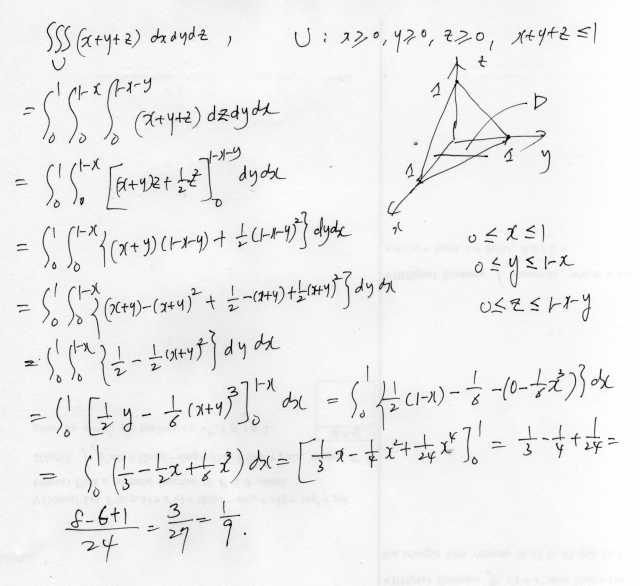 ∭_U (x+y+z) dxdydz , U : x≥0, y≥0, z≥0, x+y+z ≤ 1
= ∫₀¹ ∫₀^{1-x} ∫₀^{1-x-y} (x+y+z) dz dy dx
= ∫₀¹ ∫₀^{1-x} [(x+y)z + 1/2 z²]₀^{1-x-y} dy dx
= ∫₀¹ ∫₀^{1-x} {(x+y)(1-x-y) + 1/2 (1-x-y)²} dy dx
= ∫₀¹ ∫₀^{1-x} {(x+y)-(x+y)² + 1/2 -(x+y)+1/2(x+y)²} dy dx
= ∫₀¹ ∫₀^{1-x} {1/2 - 1/2(x+y)²} dy dx
= ∫₀¹ [1/2 y - 1/6 (x+y)³]₀^{1-x} dx = ∫₀¹ {1/2 (1-x) - 1/6 -(0-1/6 x³)} dx
= ∫₀¹ (1/3 - 1/2 x + 1/6 x³) dx = [1/3 x - 1/4 x² + 1/24 x⁴]₀¹ = 1/3 - 1/4 + 1/24 =
(8-6+1)/24 = 3/27 = 1/9.
z
1
D
1
1
y
x
0 ≤ x ≤ 1
0 ≤ y ≤ 1-x
0 ≤ z ≤ 1-x-y